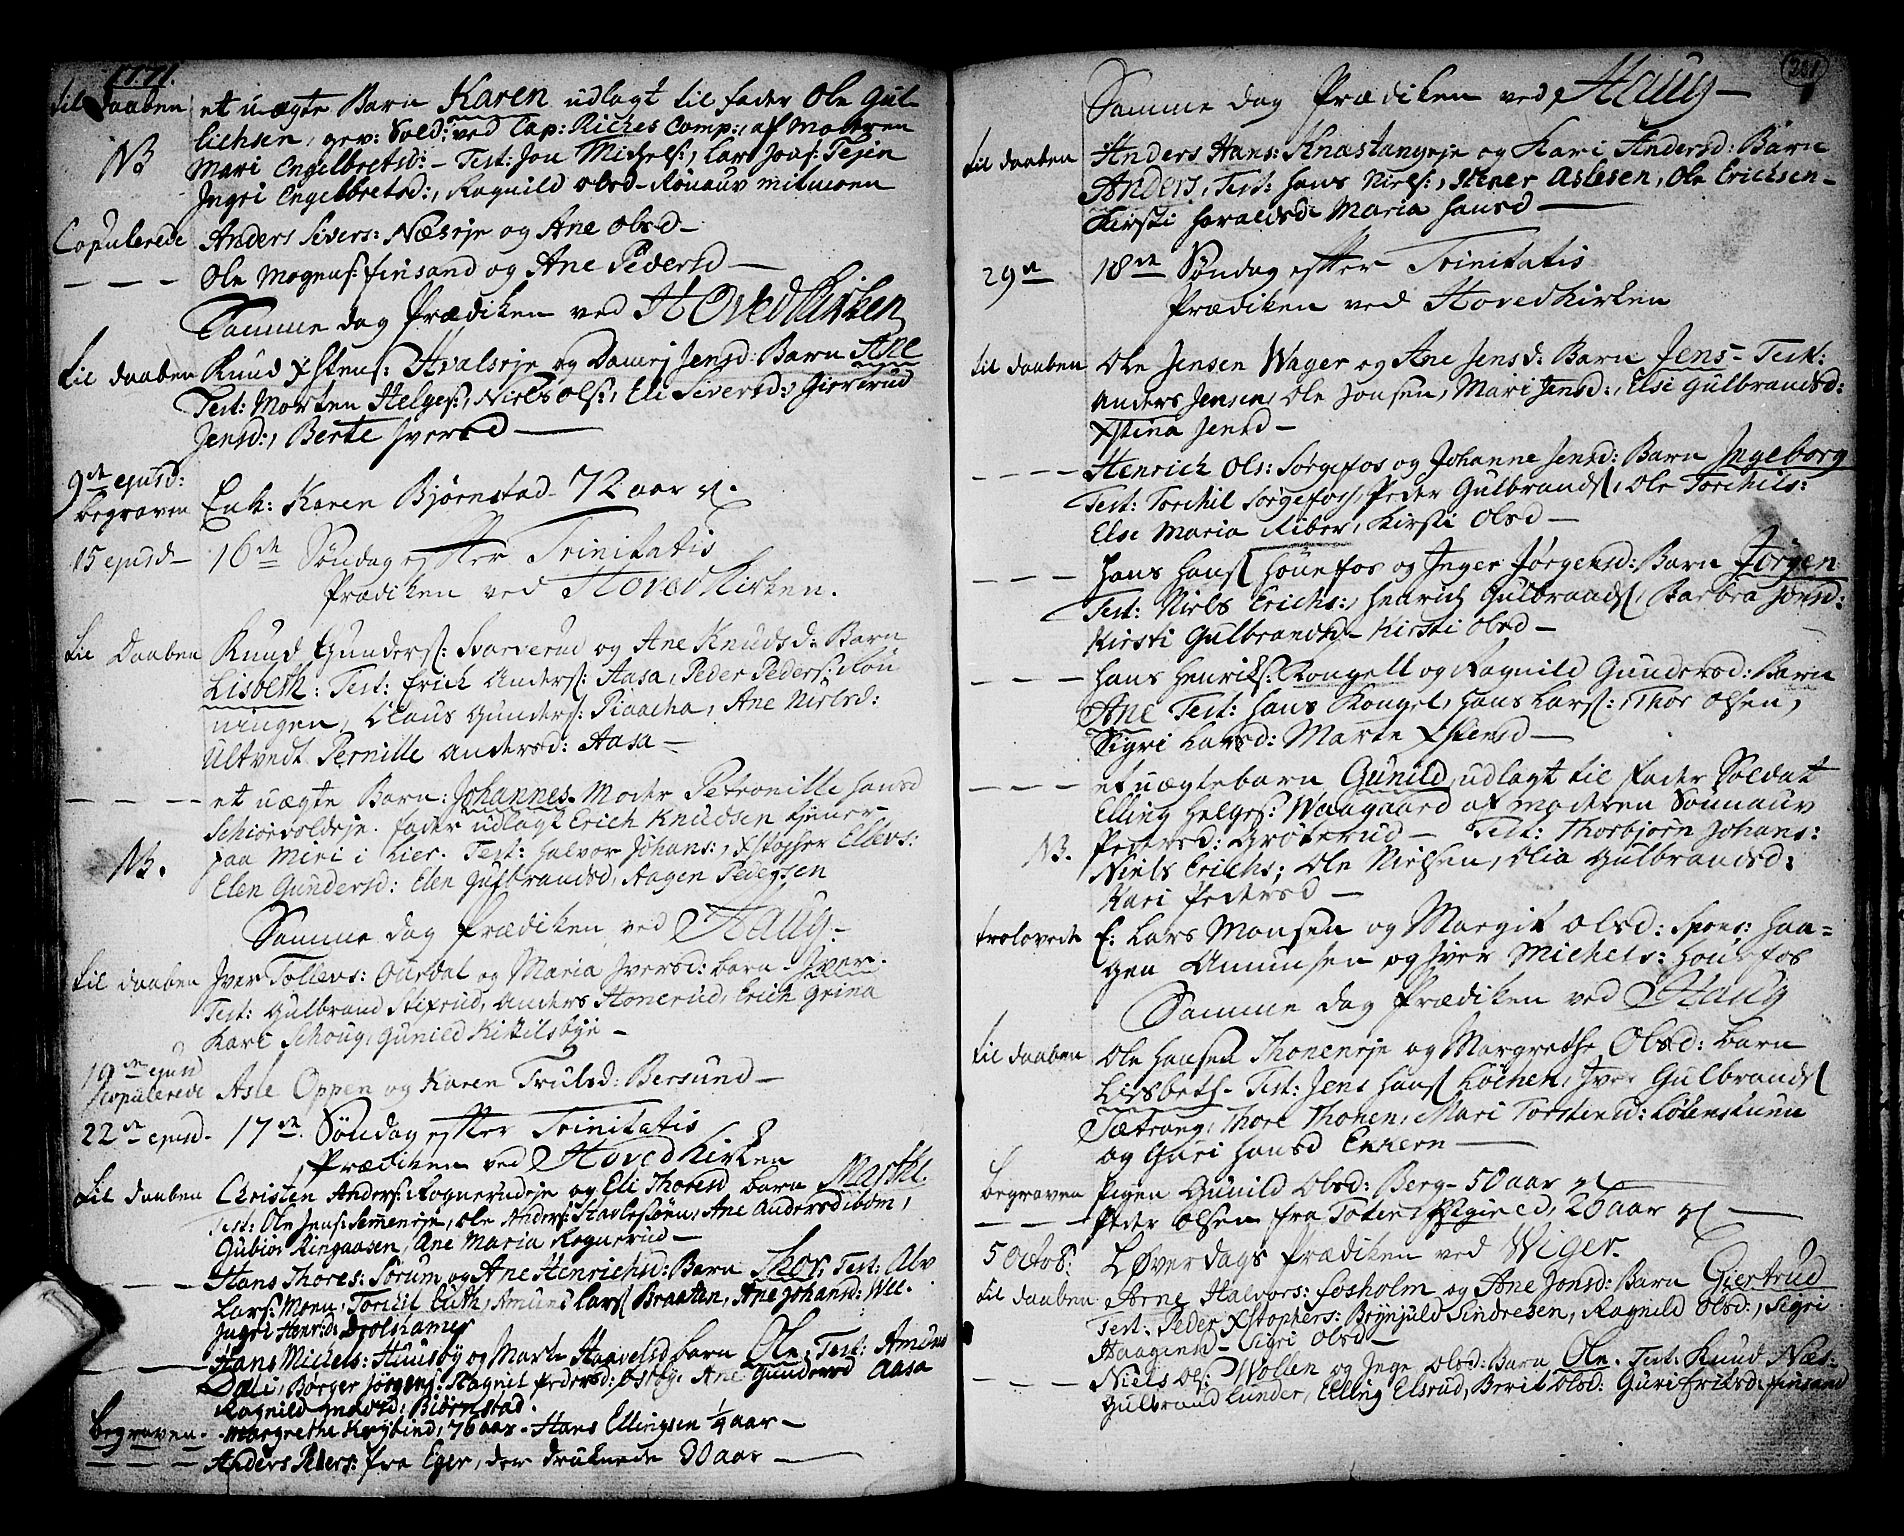 1771.
til daaben et uægte Barn Karen udlagt til fader Ole Gul-
lichsen, gev: Sold: ved Cap: Riches Comp:, af Moderen
NB Mari Engelbretsd: - Test: Jon Michels:, Lars Jons:
Ingri Engelbretsd:, Ragnild Olsd-
Copulerede Anders Sivers: Næseje og Ane Olsd -
- - - Ole Mognus: finsand og Ane Pedersd -
Samme dag Prædiken ved Hovedkirken
til daaben Knud Xstens: Hvalseje og Jensd: Barn Ane
Test: Morten Helges:, Niels Ols:, Eli Siversd:, Giertrud
Jensd:, Berte Iversd -
9de ejusd:
begraven Enk: Karen Bjørnstad 72 aar
15 ejusd - 16de Søndag efter Trinitatis
Prædiken ved Hovedkirken.
til Daaben Knud Gunders: Svarverud og Ane Knudsd: Barn
Lisbeth: Test: Erich Anders: Aasa, Peder Peders:
ningen, Claus Gunders: Ane Nielsd:
Ultvedt Pernille Andersd: Aasa -
- - - et uægte Barn: Johannes. Moder Petronille Hansd
fader udlagt Erich Knudsen tjener
NB. paa Miri i Lier. Test: Halvor Johans:, Xstoffer Ellevs:
Elen Gundersd: Elen Gulbrandsd, Aagen Pedersen
Samme dag Prædiken ved Haug -
til daaben Iver Tollevs: Ourdal og Maria Iversd: barn Iver.
Test: Gulbrand Stixrud, Anders Honerud, Erich Grina
Kari Schoug, Gunild Kittilsbye -
19de ejusd
Copulerede Asle Oppen og Karen Trulsd: Bersund -
22de ejusd- 17de Søndag efter Trinitatis
Prædiken ved Hovedkirken
til daaben Christen Anders: Rognerudeje og Eli Thoresd barn Marthe.
Test: Ole Jens: Semmeneje, Ole Anders: Ane Andersd
Ringaasen, Ane Maria Rognerud -
- - - Hans Thores: Sorum og Ane Henrichsd: Barn Thor, Test: Alv
Lars: Moen, Torchil Amund Lars: Braaten, Ane Johansd: Wee.
Ingri Henrsd:
- - - Hans Michels: Huusby og Marte Haavelsd barn Ole, Test: Amund
Dæli, Børger Jørgens: Magnil Pedersd: Ane Gundersd Aasa
Ragnild Madsd: Biørnstad.
begraven. Margrethe 76 aar - Hans Ellingsen 1/4 aar -
- - - Anders Peders: fra Eger, der druknede 30 aar -
201
Samme dag Prædiken ved Haug -
til daaben Anders Hans: Knæstangeje og Kari Andersd: Barn
Anders, Test: Hans Niels:, Stener Aslesen, Ole Erichsen -
Kirsti Haraldsd: Maria Hansd -
29de 18de Søndag efter Trinitatis
Prædiken ved Hovedkirken
til daaben Ole Jensen Wager og Ane Jensd: Barn Jens - Test:
Anders Jensen, Ole Jonsen, Mari Jensd:, Elsi Gulbrandsd:
Xstina Jensd -
- - - Henrich Ols: Sørgefos og Johanne Jensd: Barn Ingeborg
Test: Torchil Sørgefos, Peder Gulbrands:, Ole Torchils:
Else Maria Riber, Kirsti Olsd -
- - - Hans Hans: Hønefos og Inger Jørgensd: Barn Jørgen
Test: Niels Erichs:, Henrich Gulbrands:, Barbra Jonsd:
Kirsti Gulbrandsd - Kirsti Olsd -
- - - Hans Henriks: Kongell og Ragnild Gundersd: Barn
Ane Test: Hans Kongel, Hans Lars:, Thor Olsen,
Sigri Larsd: Marte Xstensd -
- - - et uægte barn Gunild udlagt til fader Soldat
Elling Helges: Waagaard af moderen Sønnauv
Pedersd: Grøterud - Test: Thorbjørn Johans:
NB. Niels Erichs; Ole Nielsen, Olia Gulbrandsd:
Kari Pedersd -
trolovede E: Lars Monsen og Margit Olsd: Spons: Haa=
gen Amunsen og Iver Michels: Hønefos
Samme dag Prædiken ved Haug
til daaben Ole Hansen Thoneneje og Margrethe Olsd: barn
Lisbeth - Test: Jens Hans: Løchen, Iver Gulbrands:
Sætrang, Thore Thonen, Mari Torstensd: Løkenstuen
og Guri Hansd Ekkern -
begraven Pigen Gunild Olsd: Berg - 50 aar
- - - Peder Olsen fra Toten 26 aar
5 Octob: Løverdags Prædiken ved Wiger.
til daaben Arne Halvors: Fosholm og Ane Jonsd: Barn Giertrud
Test: Peder Xstophers: Brynjuld Sindresen, Ragnild Olsd:, Sigri
Haagensd - Sigri Olsd -
- - - Niels Ols: Wollen og Inge Olsd: Barn Ole. Test: Knud Næs:
Gulbrand Lunder, Elling Elsrud, Berit Olsd: Guri Eriksd: finsand